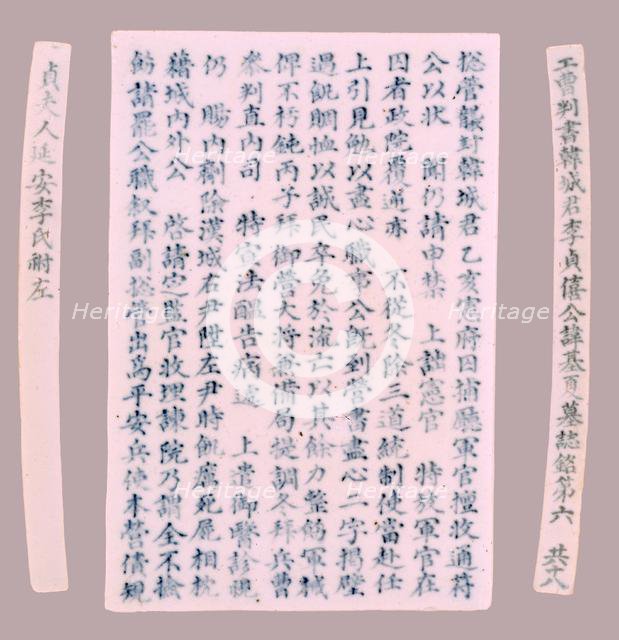 工曹判書韓城君李貞僖公諱基夏墓誌銘第六 共十八
捴管襲封韓城君乙亥憲府因捕廳軍官擅收通符
公以狀 聞仍請由禁 上詘憲官 特放軍官在
囚者政院覆逆亦 不從冬除三道統制使當赴任
上引見勉以盡心職事公旣到營書盡心二字揭壁
遇飢賙恤以誠民卒免於流亡以其餘力整飭軍械
俾不朽鈍丙子拜御營大將兼備局提調冬拜兵曹
參判直內司 特宣法醞告病遞 上遣御醫診視
仍 賜內劑除漢城右尹陞左尹時飢癘死屍相枕
藉城內外公 啓請定監官收埋諫院乃謂全不擒
飭請罷公職叙拜副捴管出爲平安兵使本營債規
貞夫人延安李氏祔左
Heritage
Heritage
Heritage
Heritage
Heritage
Heritage
Heritage
Heritage
Heritage